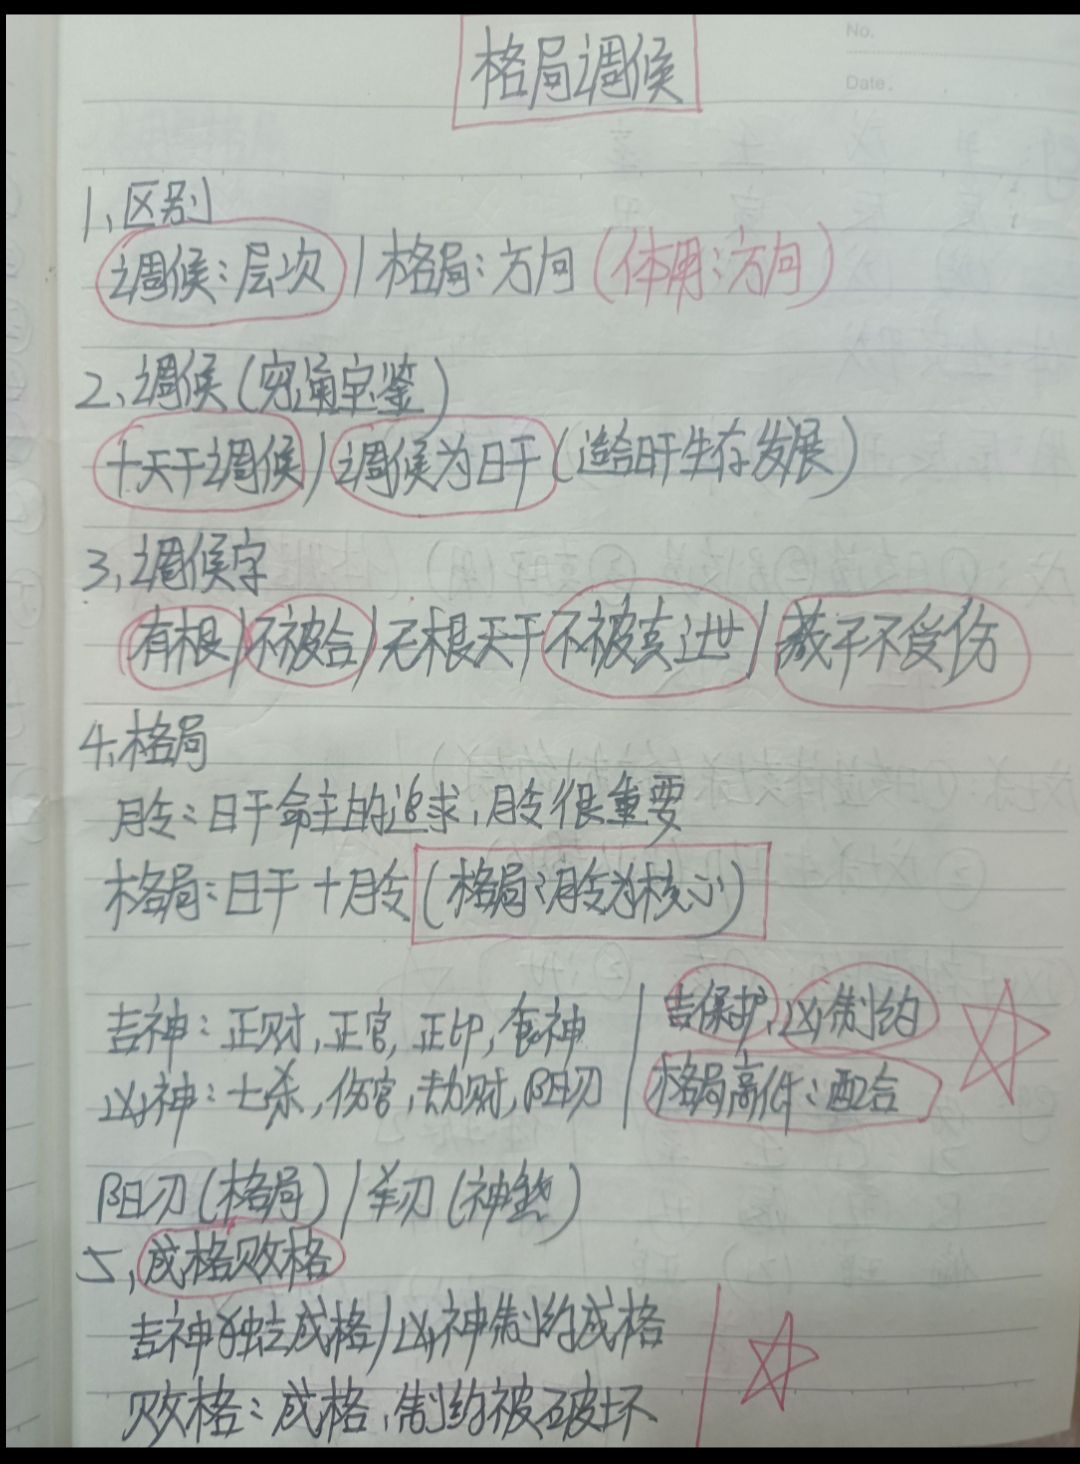 No.
Date.
格局调候
1、区别
调候：层次 | 格局：方向（体用：方向）
2、调候（穷通宝鉴）
十天干调候 | 调候为日干（适合日干生存发展）
3、调候字
有根 | 不被合 | 无根天干不被克泄 | 藏干不受伤
4、格局
月令：日干命主的追求，月令很重要
格局：日干十月令（格局：月令为核心）
吉神：正财，正官，正印，食神 | 吉保护，凶制约
凶神：七杀，伤官，劫财，阳刃 | 格局高低：配合
阳刃（格局）| 羊刃（神煞）
5、成格败格
吉神独立成格 | 凶神制约成格
败格：成格、制约被破坏